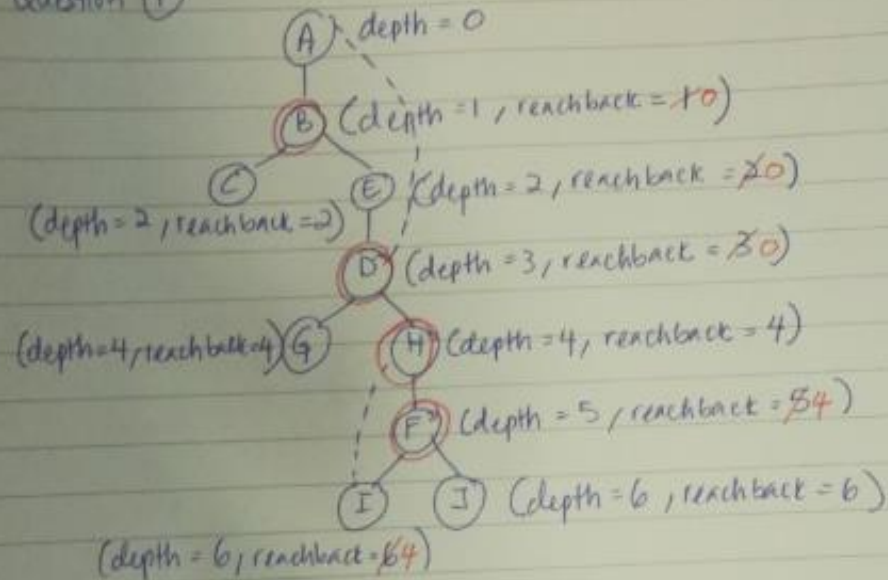 Question 1
A depth = 0
B (depth = 1, reachback = 1 0)
C E (depth = 2, reachback = 2 0)
(depth = 2, reachback = 2)
D (depth = 3, reachback = 3 0)
(depth = 4, reachback = 4) G H (depth = 4, reachback = 4)
F (depth = 5, reachback = 5 4)
I J (depth = 6, reachback = 6)
(depth = 6, reachback = 6 4)